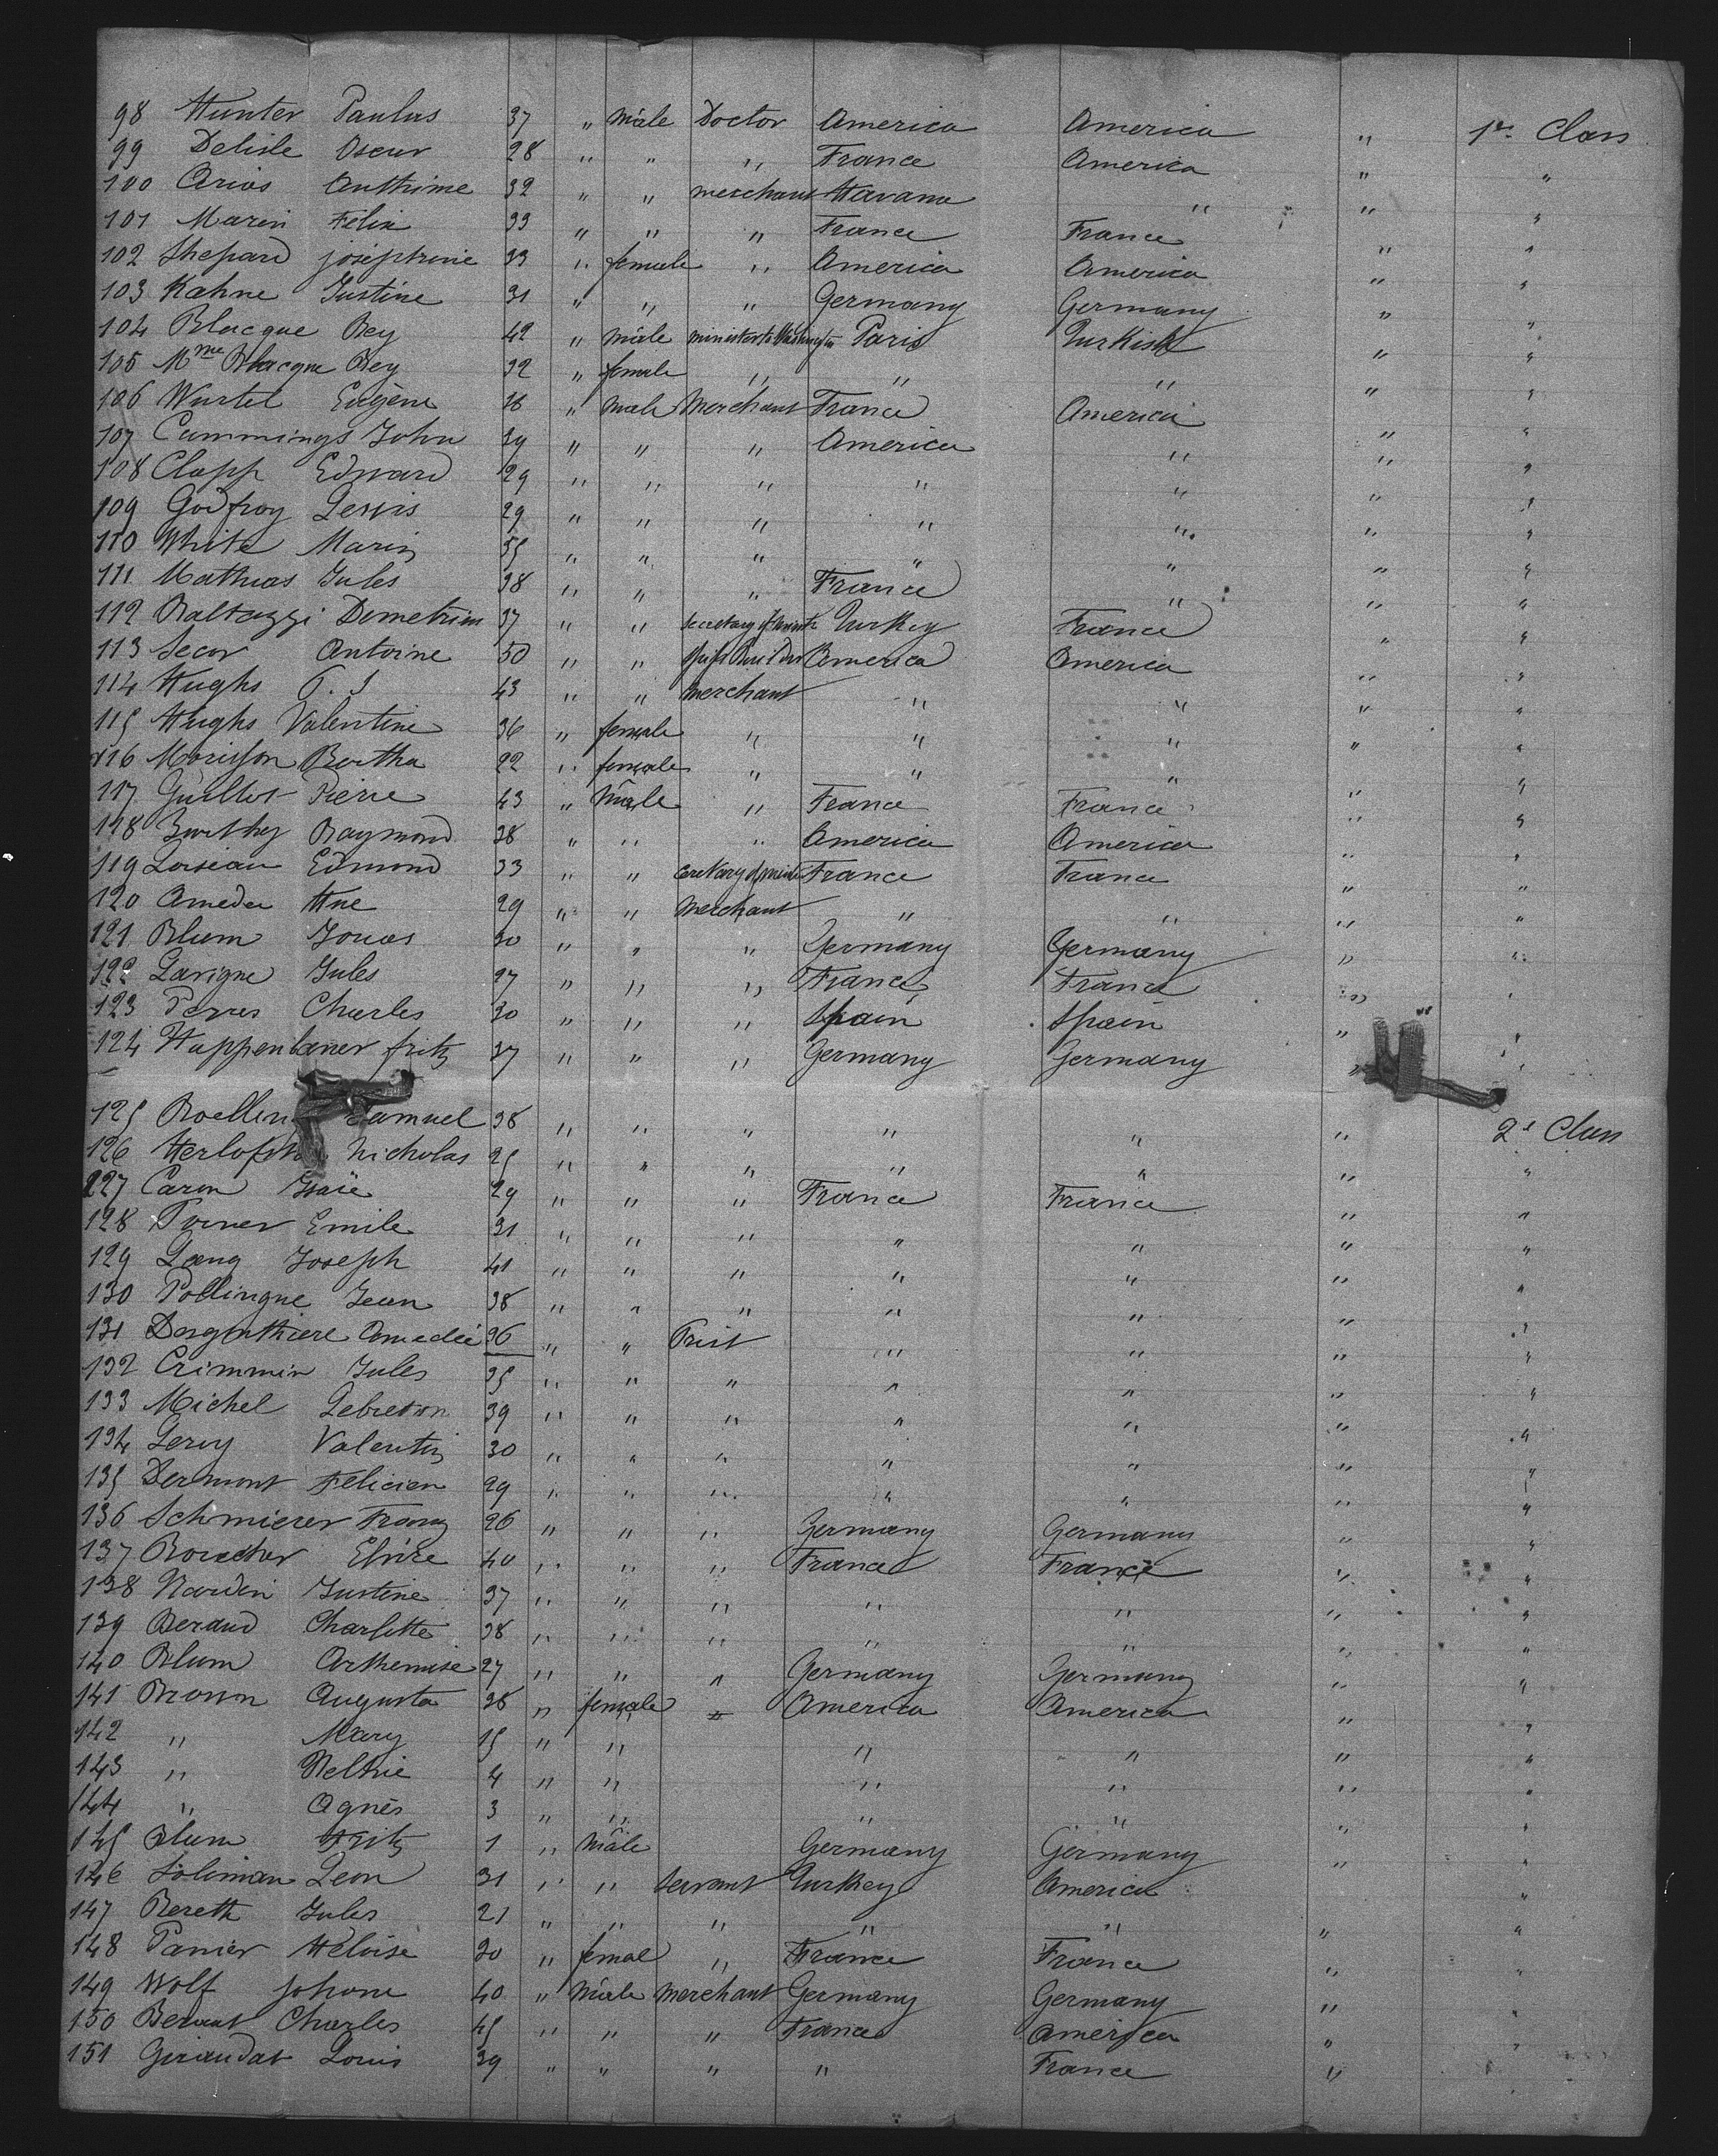 98 Hunter Paulus 37 " Mâle Doctor America America " 1re Class
99 Delisle Oscar 28 " " " France America " "
100 Arios Anthime 32 " " merchant Havana " " "
101 Marin Félix 33 " " " France France " "
102 Shepard joséphine 33 " female " America America " "
103 Kahne Justine 31 " " " Germany Germany " "
104 Blacque Bey 42 " mâle minister to Washington Paris Turkish " "
105 Mme Blacque Bey 32 " female " " " " "
106 Wurtel Eugène 38 " Male Merchant France America " "
107 Cummings John 39 " " " America " " "
108 Clapp Edward 29 " " " " " " "
109 Godfroy Lewis 29 " " " " " " "
110 White Marin 55 " " " " " " "
111 Mathias Jules 38 " " " France " " "
112 Baltazzi Demetrius 37 " " Turkey France " "
113 Secor Antoine 50 " " Ship Builder America America " "
114 Hughs 43 " " Merchant " " " "
115 Hughs Valentine 36 " female " " " " "
116 Morisson Bertha 22 " female " " " " "
117 Guillot Pierre 43 " Mâle " France France " "
118 Raymond 38 " " " America America " "
119 Loiseau Edmond 33 " " France France " "
120 Amedee Hue 29 " " Merchant " " " "
121 Blum Jonas 30 " " " Germany Germany " "
122 Lavigne Jules 27 " " " France France " "
123 Perres Charles 30 " " " Spain Spain " "
124 Happenbaner fritz 37 " " " Germany Germany " "
125 Samuel 38 " " " " " " 2d Class
126 Nicholas 25 " " " " " " "
127 Caron Isaïe 29 " " " France France " "
128 Emile 31 " " " " " " "
129 Lang Joseph 41 " " " " " " "
130 Pollingue Jean 38 " " " " " " "
131 Amedée 36 " " Prist " " " "
132 Crimmin Jules 35 " " " " " " "
133 Michel Lebreton 39 " " " " " " "
134 Leroy Valentin 30 " " " " " " "
135 Dermont Felicien 29 " " " " " " "
136 Schmierer Franz 26 " " " Germany Germany " "
137 Elvire 40 " " " France France " "
138 Nardin Justine 37 " " " " " " "
139 Beraud Charlotte 38 " " " " " " "
140 Blum Arthemise 27 " " " Germany Germany " "
141 Brown Augusta 38 " female " America America " "
142 " Mary 15 " " " " " "
143 " Nelthie 4 " " " " " "
144 " Agnès 3 " " " " " "
145 Blum Fritz 1 " Mâle Germany Germany " "
146 Soliman Leon 31 " " servant Turkey America " "
147 Bereth Jules 21 " " " " " " "
148 Panier Héloïse 30 " femal " France France " "
149 Wolf Johann 40 " Mâle Merchant Germany Germany " "
150 Charles 45 " " " France America " "
151 Giraudat Louis 39 " " " " France " "